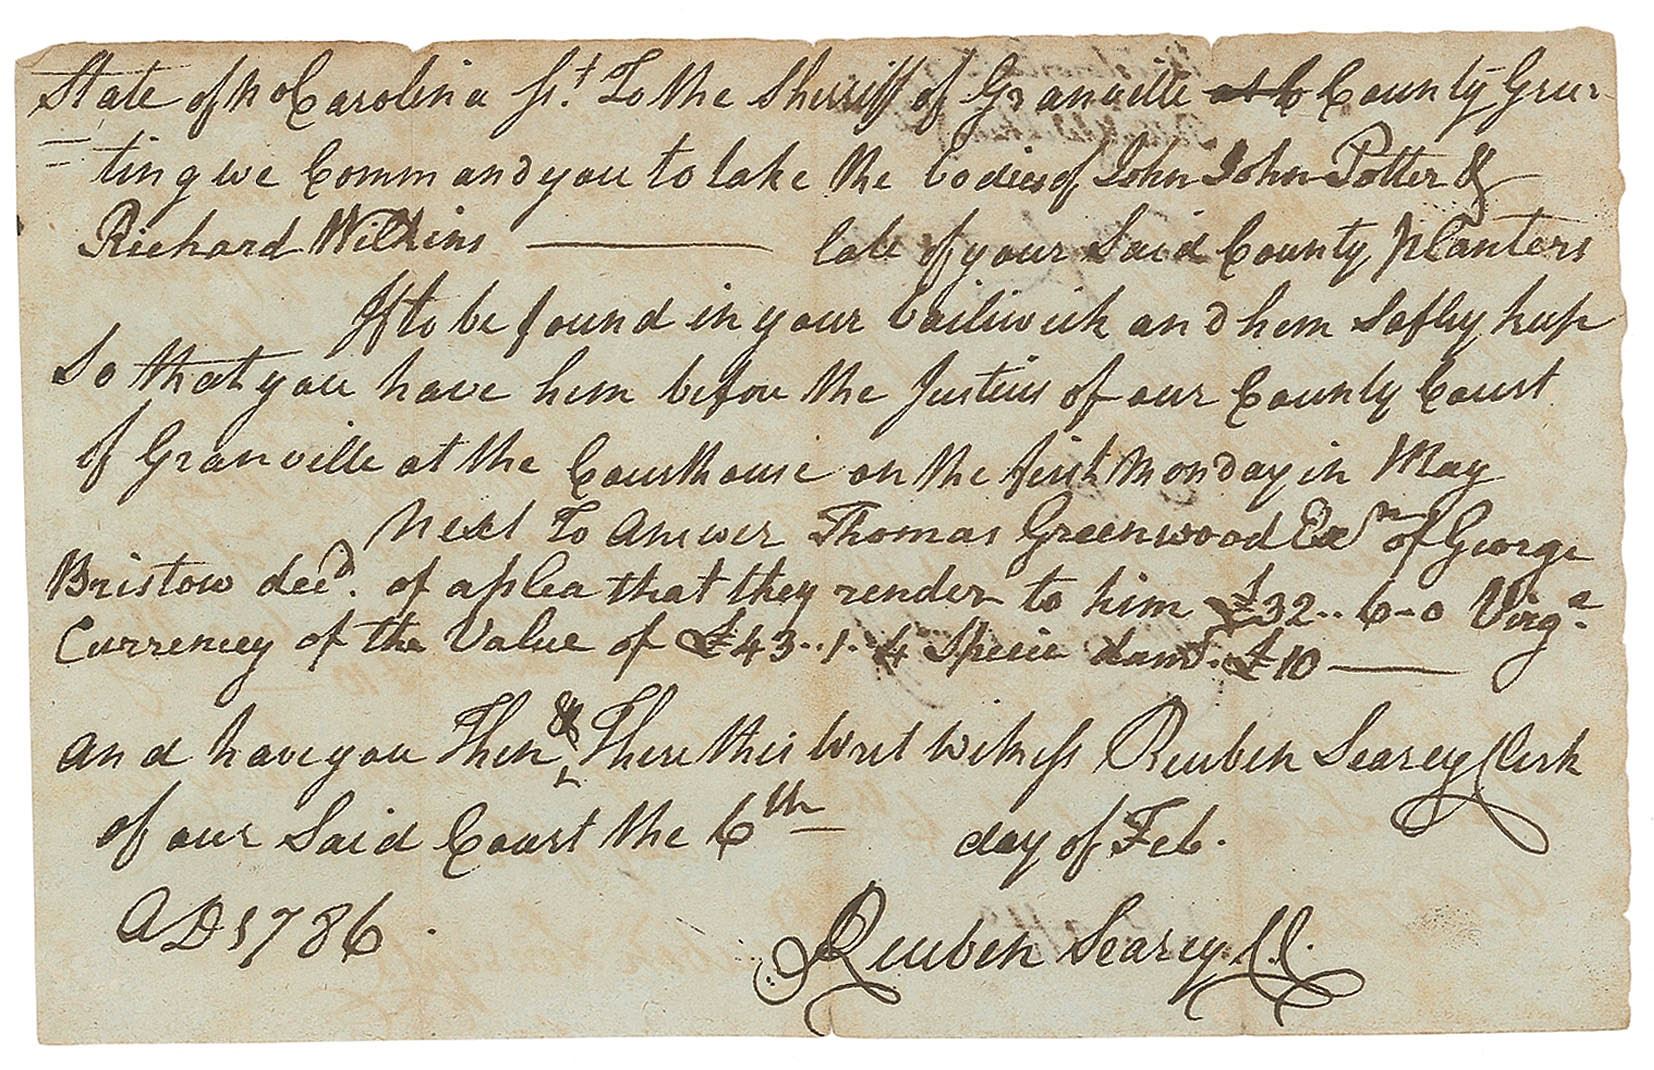 State of No Carolina Ss.t To the Sherriff of Granville at C County Gree-
ting we Command you to take the bodies of John John Potter &
Richard Wilkins ——— late of your Said County planters
If to be found in your bailiwick and hem Safley keep
So that you have him before the Justices of our County Court
of Granville at the Courthouse on the first Monday in May
Next To Answer Thomas Greenwood Exr of George
Bristow decd. of a plea that they render to him £32..6-0 Virga.
Currency of the Value of £43..1.4 Specie damd. £10 ———
and have you Then & There this Writ Witness Reuben Searcy Clerk
of our Said Court the 6th day of Feb.
AD 1786.
Reuben Searcy CC.